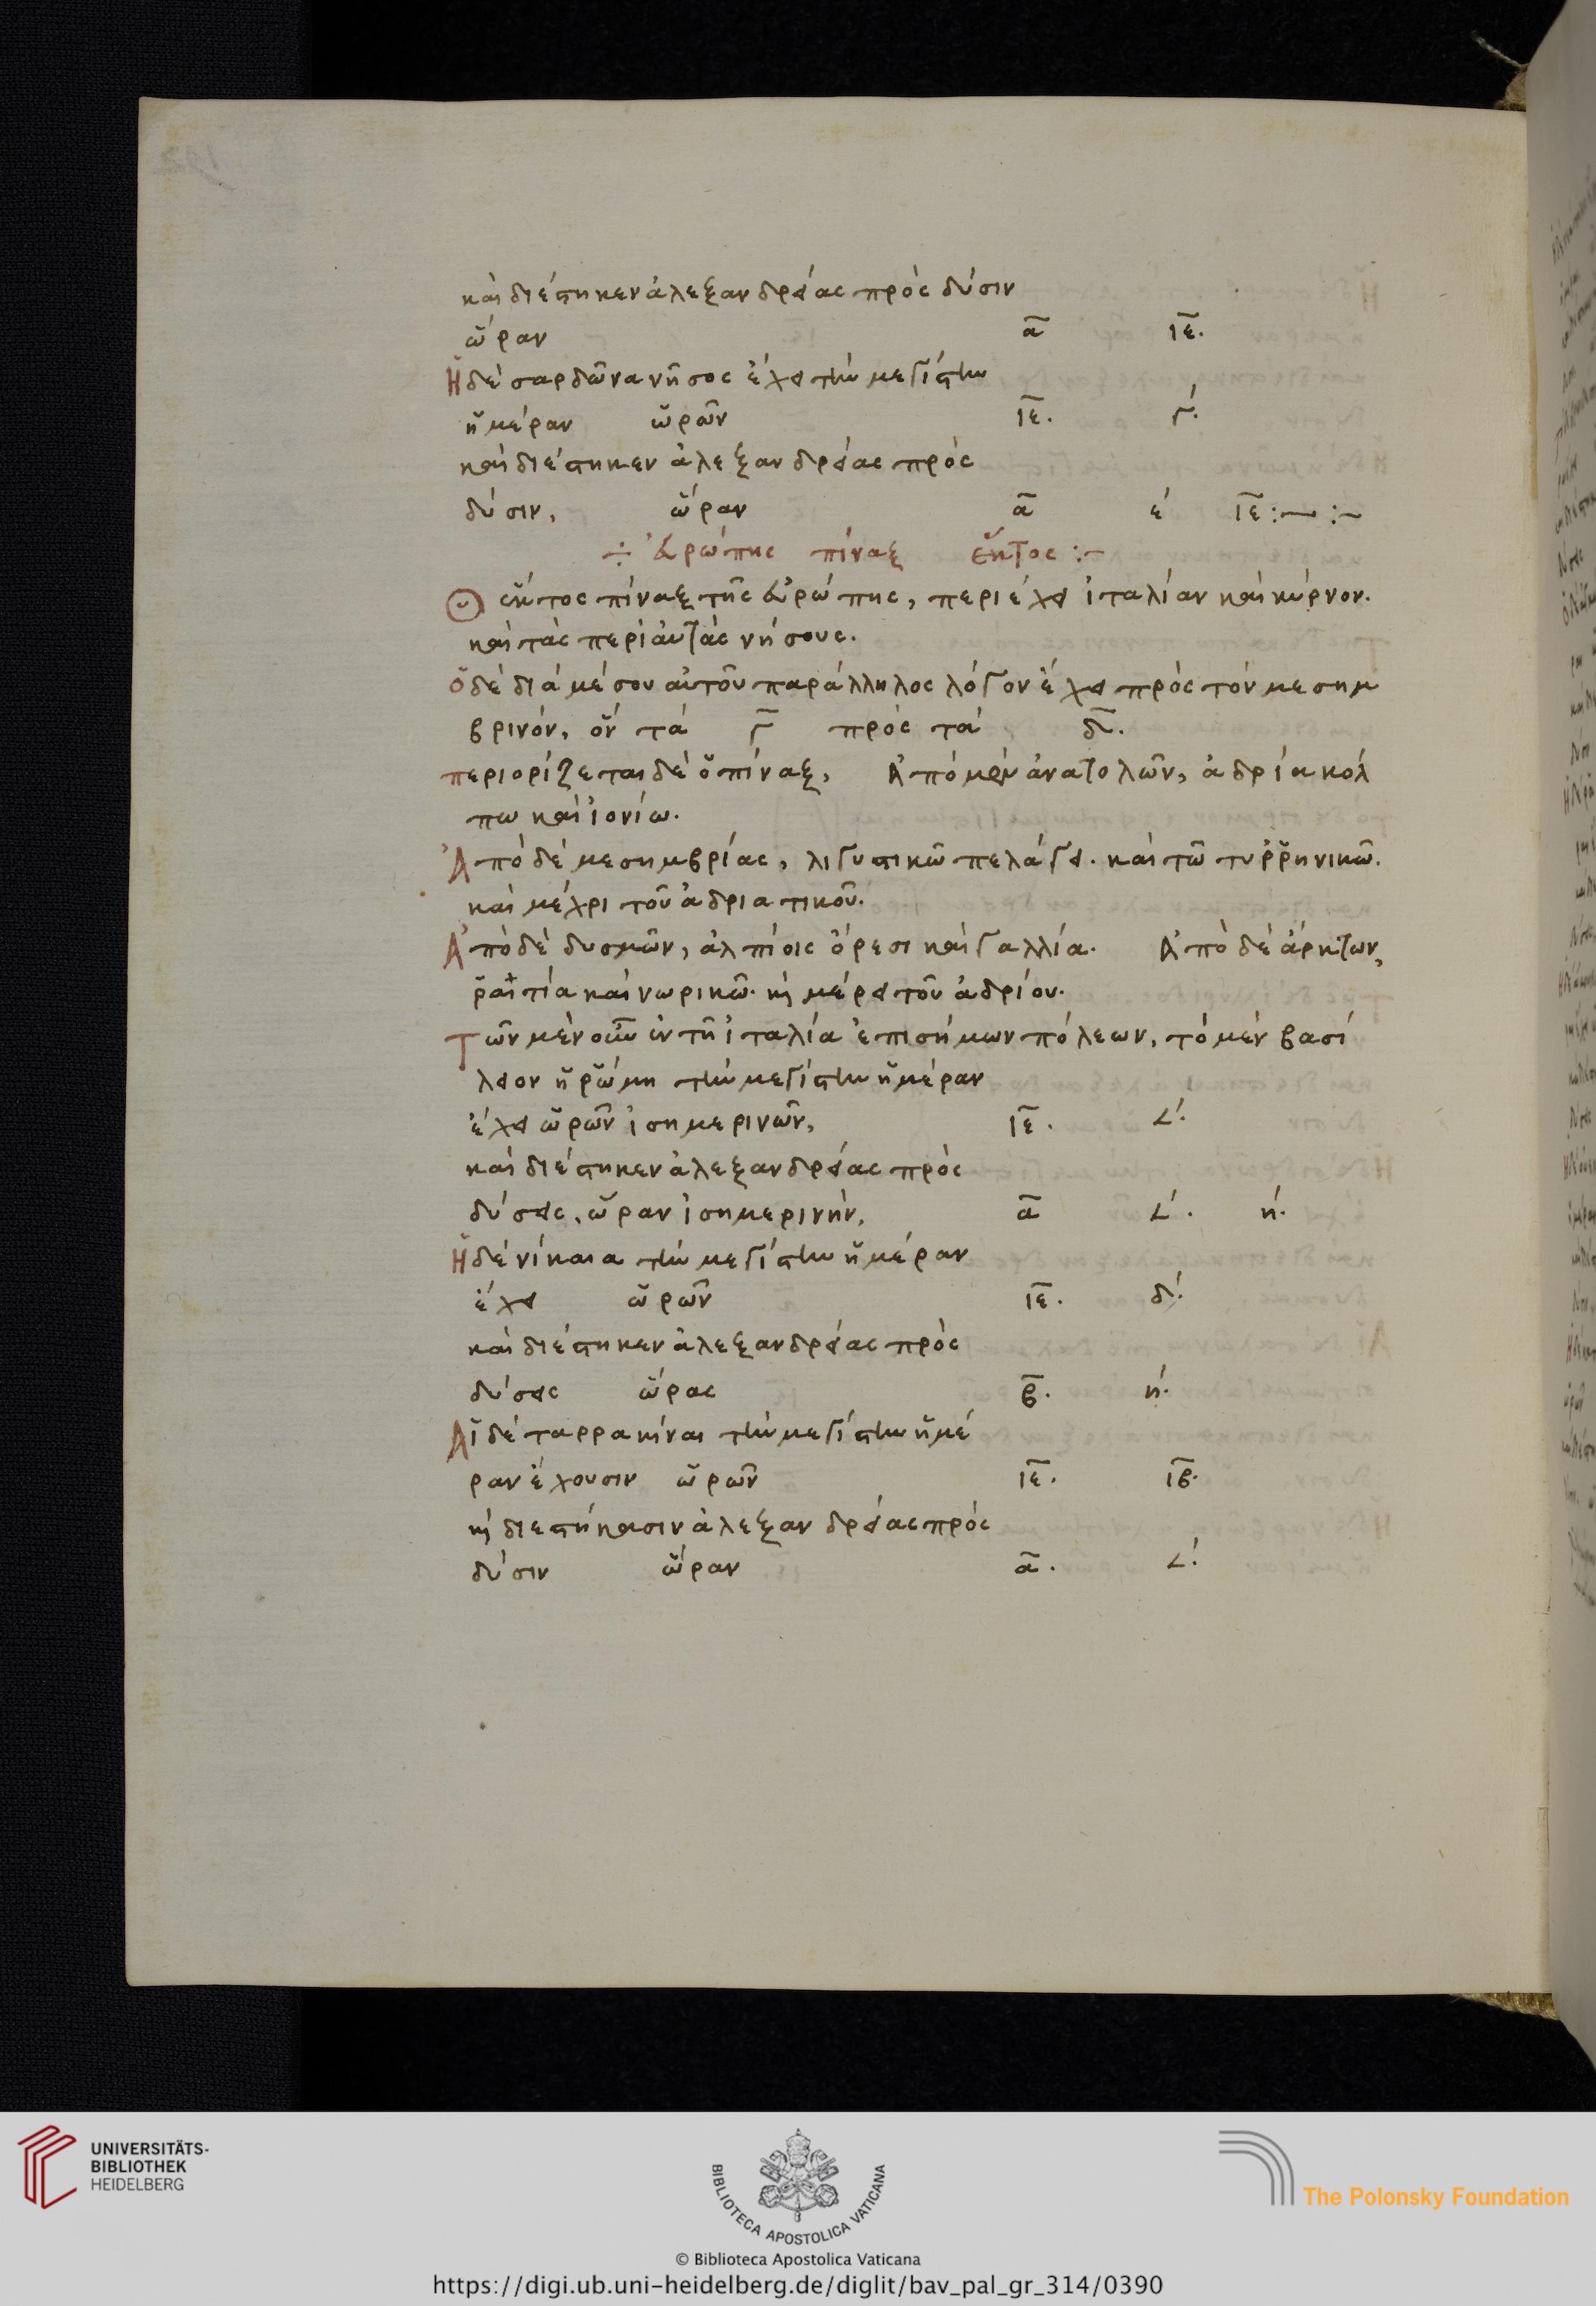 καὶ διέστηκεν ἀλεξανδρείας πρὸς δύσιν
ὥραν α̅ ιε̅.
Ἡ δὲ σαρδῶνα νῆσος ἔχει τὴν μεγίστην
ἡμέραν ὡρῶν ιε̅. γ´.
καὶ διέστηκεν ἀλεξανδρείας πρὸς
δύσιν, ὥραν α̅ ε´ ιε̅ :~ :~
÷ Εὐρώπης πίναξ ἕκτος :~
Ὁ ἕκτος πίναξ τῆς εὐρώπης, περιέχει ἰταλίαν καὶ κύρνον.
καὶ τὰς περὶ αὐτὰς νήσους.
ὁ δὲ διὰ μέσου αὐτοῦ παράλληλος λόγον ἔχει πρὸς τὸν μεσημ
βρινόν, ὃν τὰ γ̅ πρὸς τὰ δ̅.
περιορίζεται δὲ ὁ πίναξ, Ἀπὸ μὲν ἀνατολῶν, ἀδρία κόλ
πω καὶ ἰονίω.
Ἀπὸ δὲ μεσημβρίας, λιγυστικῶ πελάγει. καὶ τῶ τυῤῥηνικῶ.
καὶ μέχρι τοῦ ἀδριατικοῦ.
Ἀπὸ δὲ δυσμῶν, ἀλπίοις ὄρεσι καὶ γαλλία. Ἀπὸ δὲ ἄρκτων,
ῥαιτία καὶ νωρικῶ. καὶ μέρει τοῦ ἀδρίου.
Τῶν μὲν οὖν ἐν τῆ ἰταλία ἐπισήμων πόλεων, τὸ μὲν βασί
λειον ἡ ῥώμη τὴν μεγίστην ἡμέραν
ἔχει ὡρῶν ἰσημερινῶν, ιε̅. ∠´.
καὶ διέστηκεν ἀλεξανδρείας πρὸς
δύσεις, ὥραν ἰσημερινήν, α̅ ∠´. η´.
Ἡ δὲ νίκαια τὴν μεγίστην ἡμέραν
ἔχει ὡρῶν ιε̅. δ´.
καὶ διέστηκεν ἀλεξανδρείας πρὸς
δύσεις ὥρας β̅. η´.
Αἱ δὲ ταρρακίναι τὴν μεγίστην ἡμέ
ραν ἔχουσιν ὡρῶν ιε̅. ιβ̅.
καὶ διεστήκασιν ἀλεξανδρείας πρὸς
δύσιν ὥραν α̅. ∠´.
UNIVERSITÄTS-
BIBLIOTHEK
HEIDELBERG
BIBLIOTECA APOSTOLICA VATICANA
The Polonsky Foundation
© Biblioteca Apostolica Vaticana
https://digi.ub.uni-heidelberg.de/diglit/bav_pal_gr_314/0390